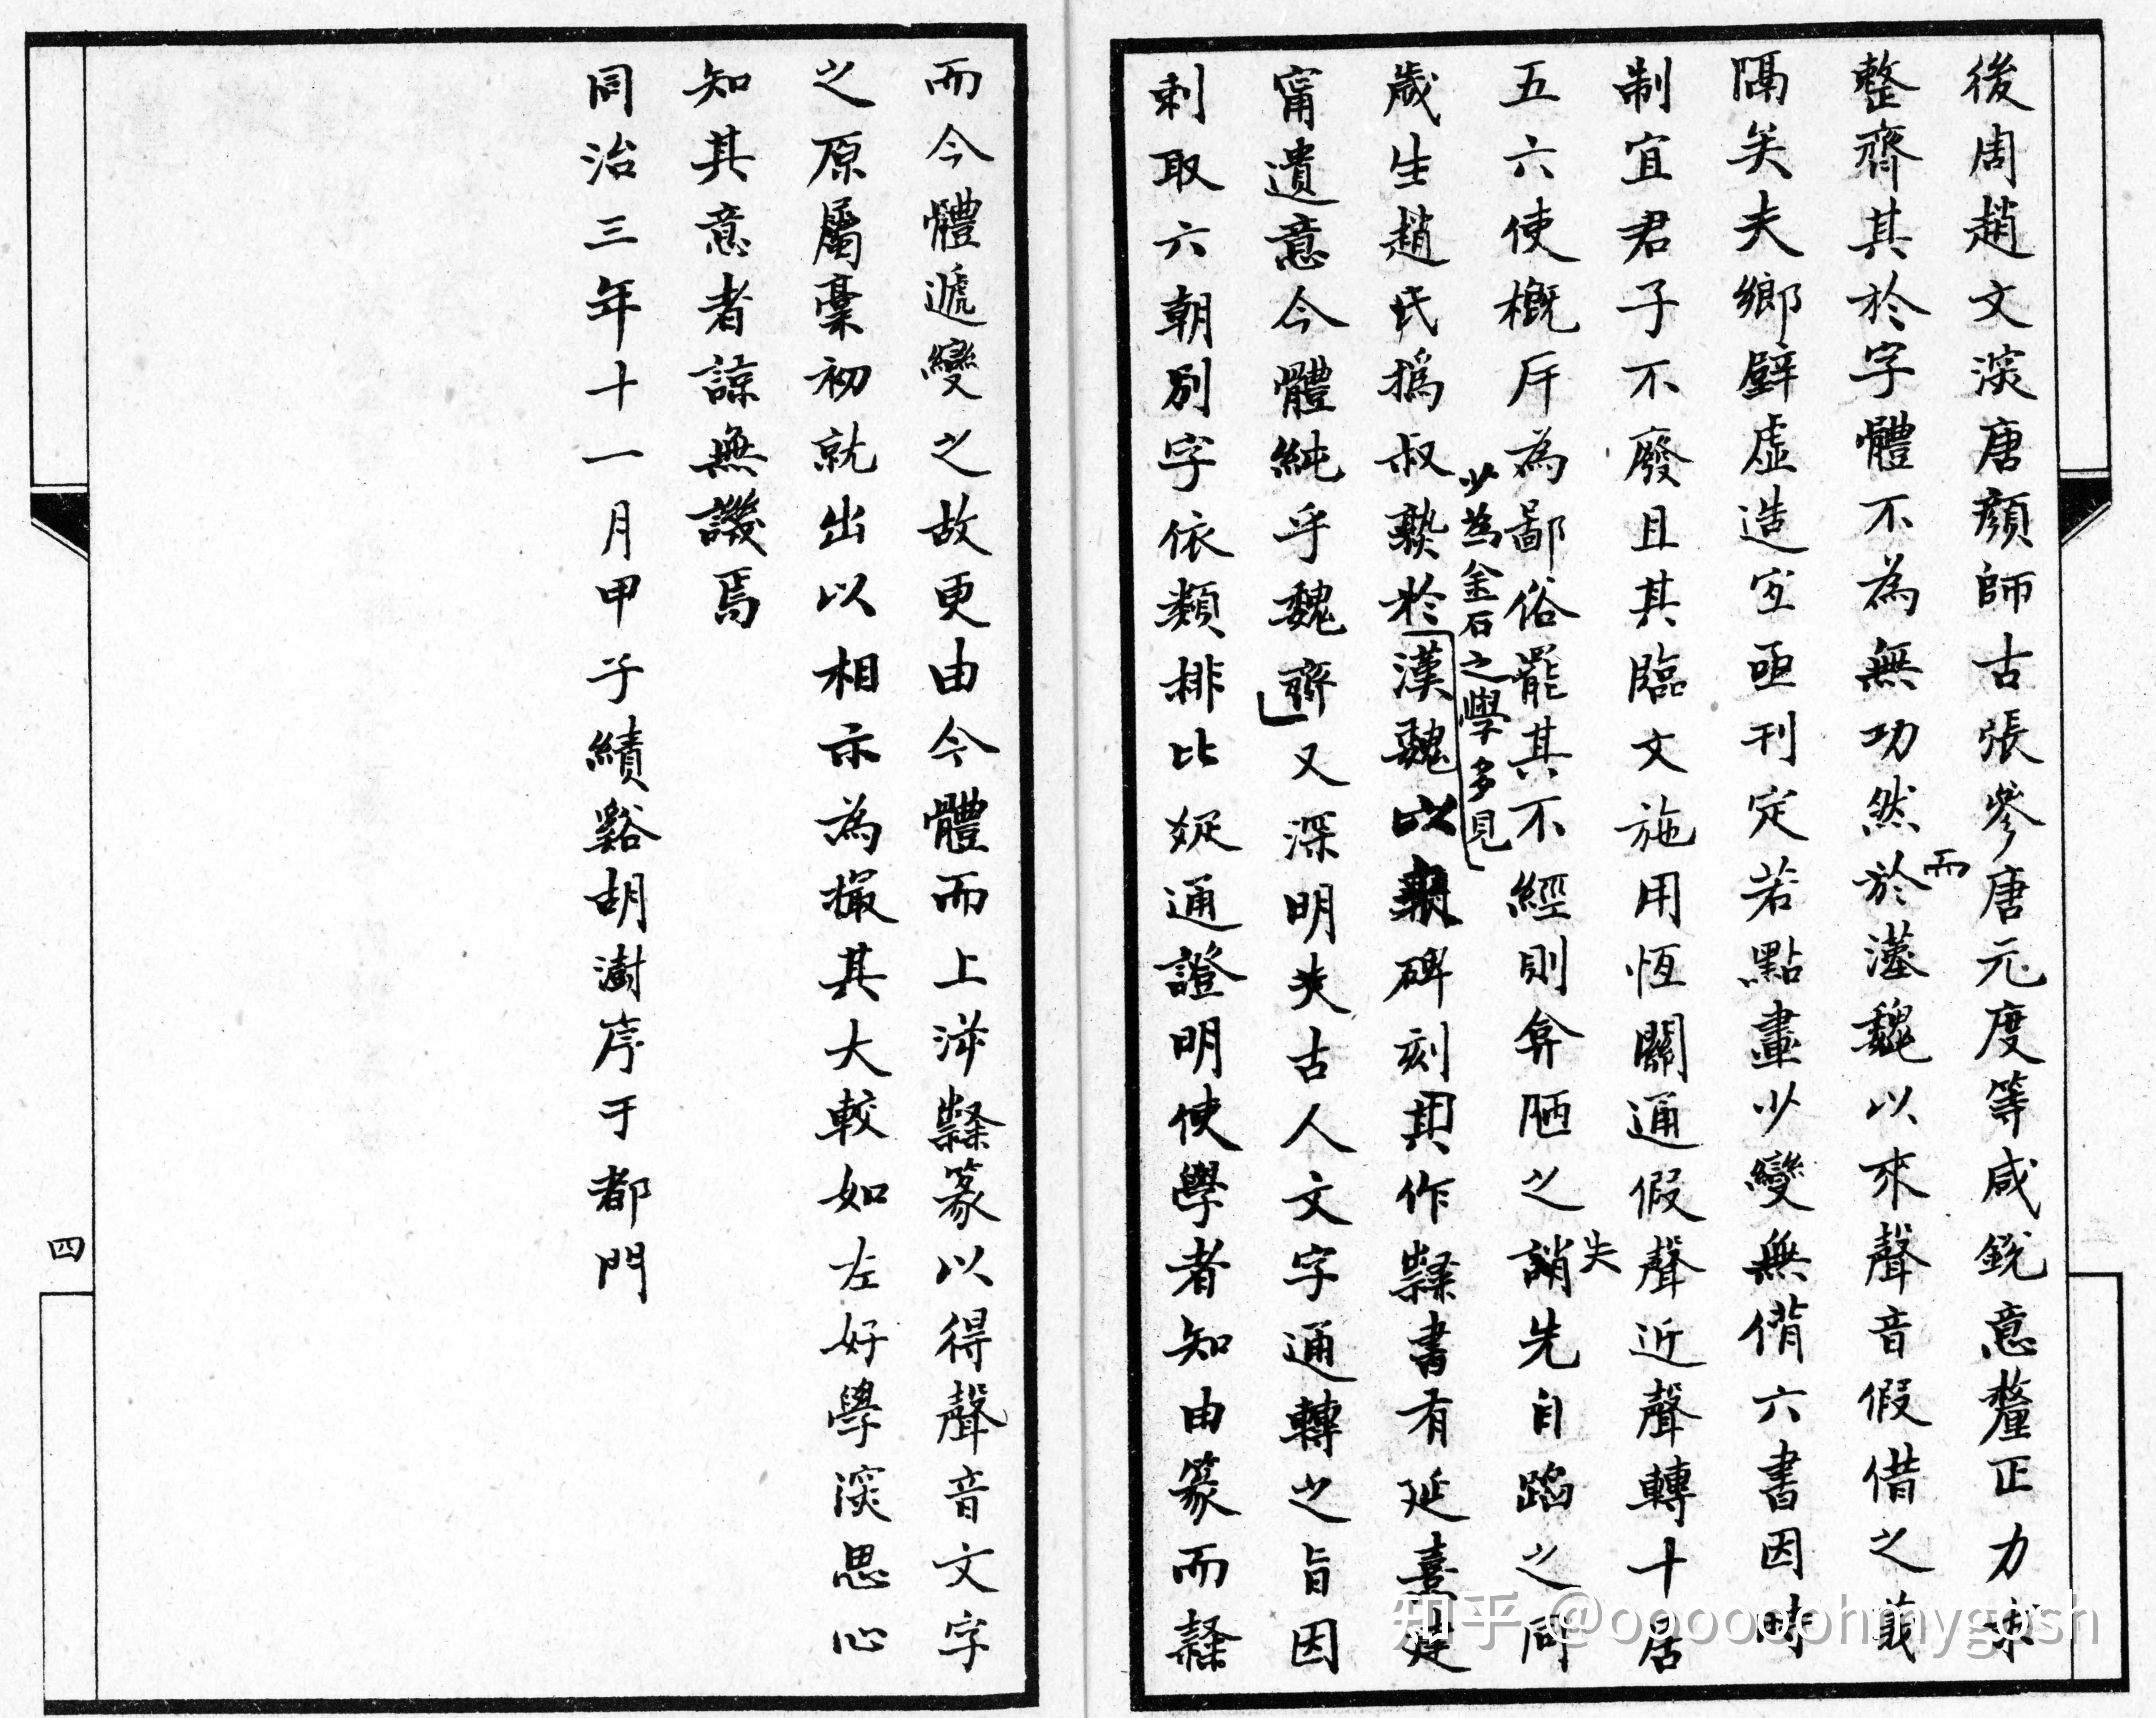 後周趙文淡唐顏師古張參唐元度等咸銳意釐正力求
整齊其於字體不為無功然而於漢魏以來聲音假借之義
隔矣夫鄉壁虛造宜亟刊定若點畫少變無偝六書因時
制宜君子不廢且其臨文施用恆關通假聲近聲轉十居
五六使概斥為鄙俗罷其不經則弇陋之失誚先自蹈之同
歲生趙氏撝叔少為金石之學多見埶於漢魏以朝碑刻其作隸書有延熹建
甯遺意今體純乎魏齊又深明夫古人文字通轉之旨因
刺取六朝別字依類排比疑通證明使學者知由篆而隸
而今體遞變之故更由今體而上泝隸篆以得聲音文字
之原屬稾初就出以相示為撮其大較如左好學深思心
知其意者諒無譏焉
同治三年十一月甲子績谿胡澍序于都門
四
知乎 @ooooooohmygosh